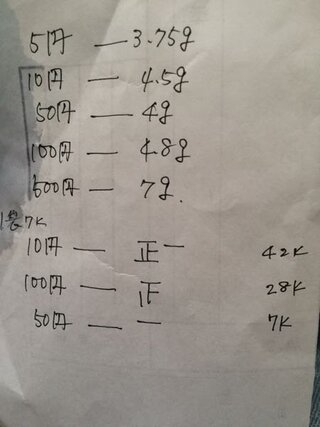 5円 — 3.75g
10円 — 4.5g
50円 — 4g
100円 — 4.8g
500円 — 7g.
1袋7K
10円 — 正一 42K
100円 — 正 28K
50円 — 一 7K